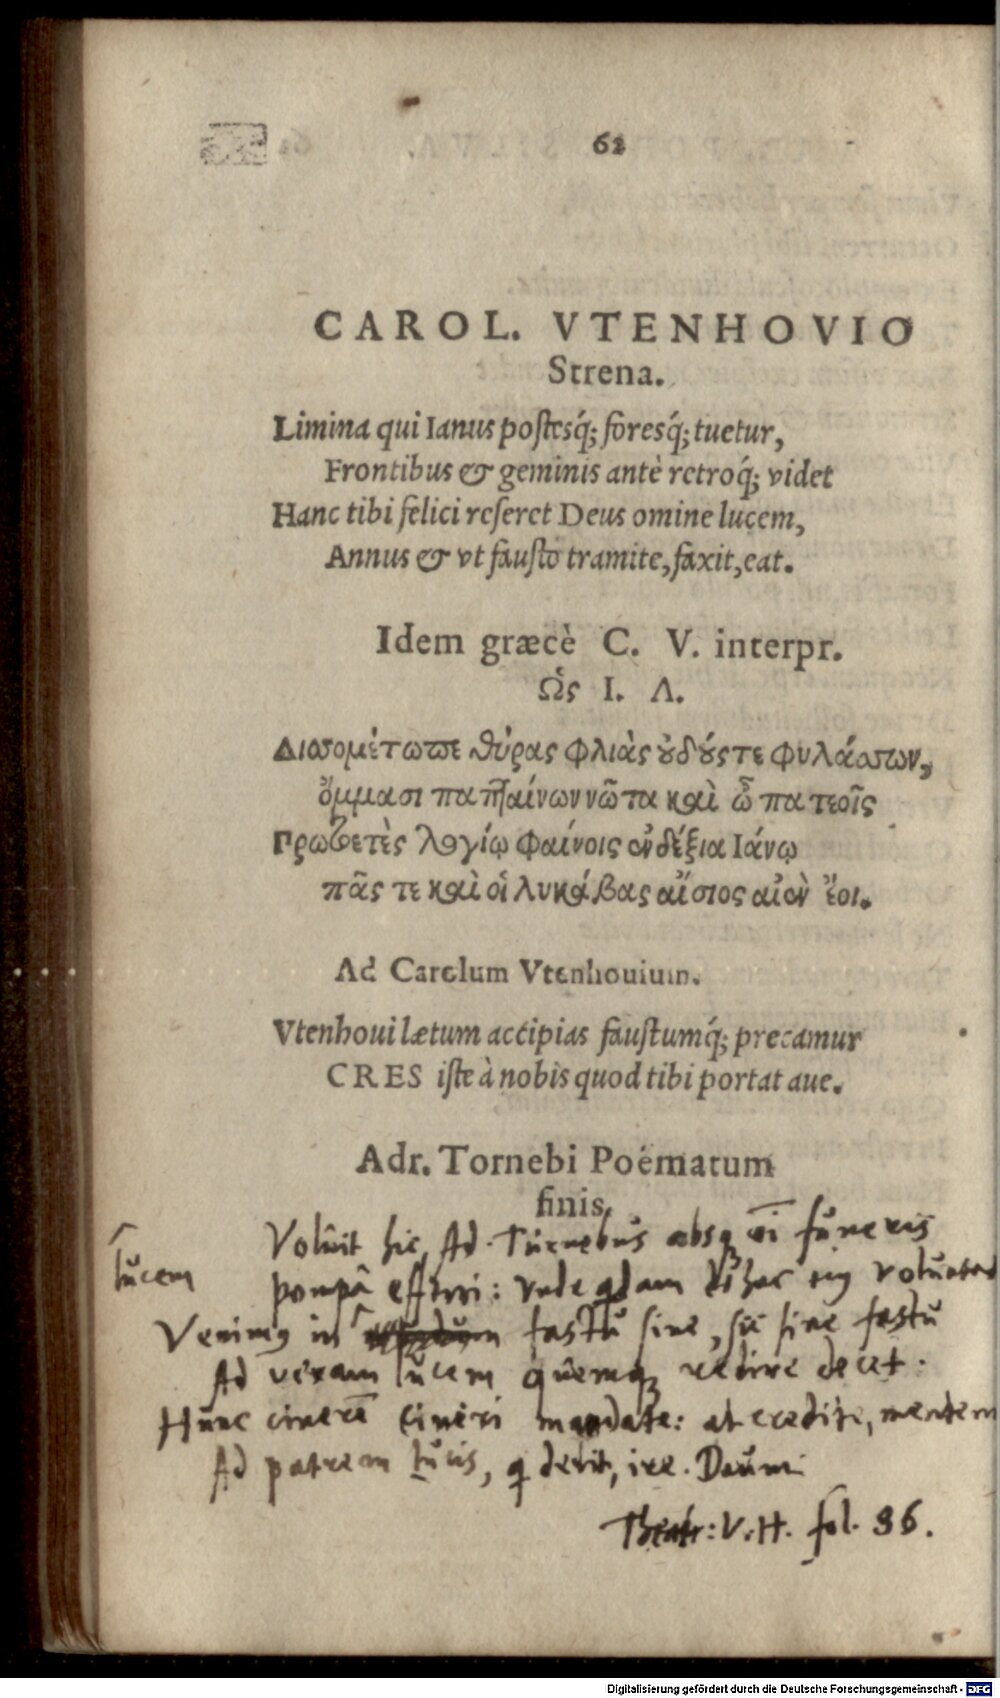 62
CAROL. VTENHOVIO
Strena.
Limina qui Ianus postesq́; foresq́; tuetur,
Frontibus & geminis antè retroq́; videt
Hanc tibi felici reseret Deus omine lucem,
Annus & vt fausto tramite, faxit, eat.
Idem græcè C. V. interpr.
Ὡς Ι. Λ.
Δισσομέτωπε θύρας φλιὰς οὐδούς τε φυλάσσων,
ὄμμασι παπταίνων νῶτα καὶ
Πρωϊετὲς λογίῳ φαίνοις ἐνδέξια Ιάνῳ
πᾶς τε καὶ οἱ λυκάβας αἴσιος αἰὲν ἔοι.
Ad Carolum Vtenhouium.
Vtenhoui lætum accipias faustumq́; precamur
CRES iste à nobis quod tibi portat aue.
Adr. Tornebi Poëmatum
finis.
Voluit hic Ad. Turnebus absq oi funeris
lucem
pompa efferri: vnde qdam
Venimus in fastu sine, sic sine fastu
Ad veram lucem quemq redire decet.
Hunc cinerē cineri mandate: at credite, mentem
Ad patrem lucis, q dedit, ire. Deum.
Theatr: V. H. fol. 96.
Digitalisierung gefördert durch die Deutsche Forschungsgemeinschaft - DFG